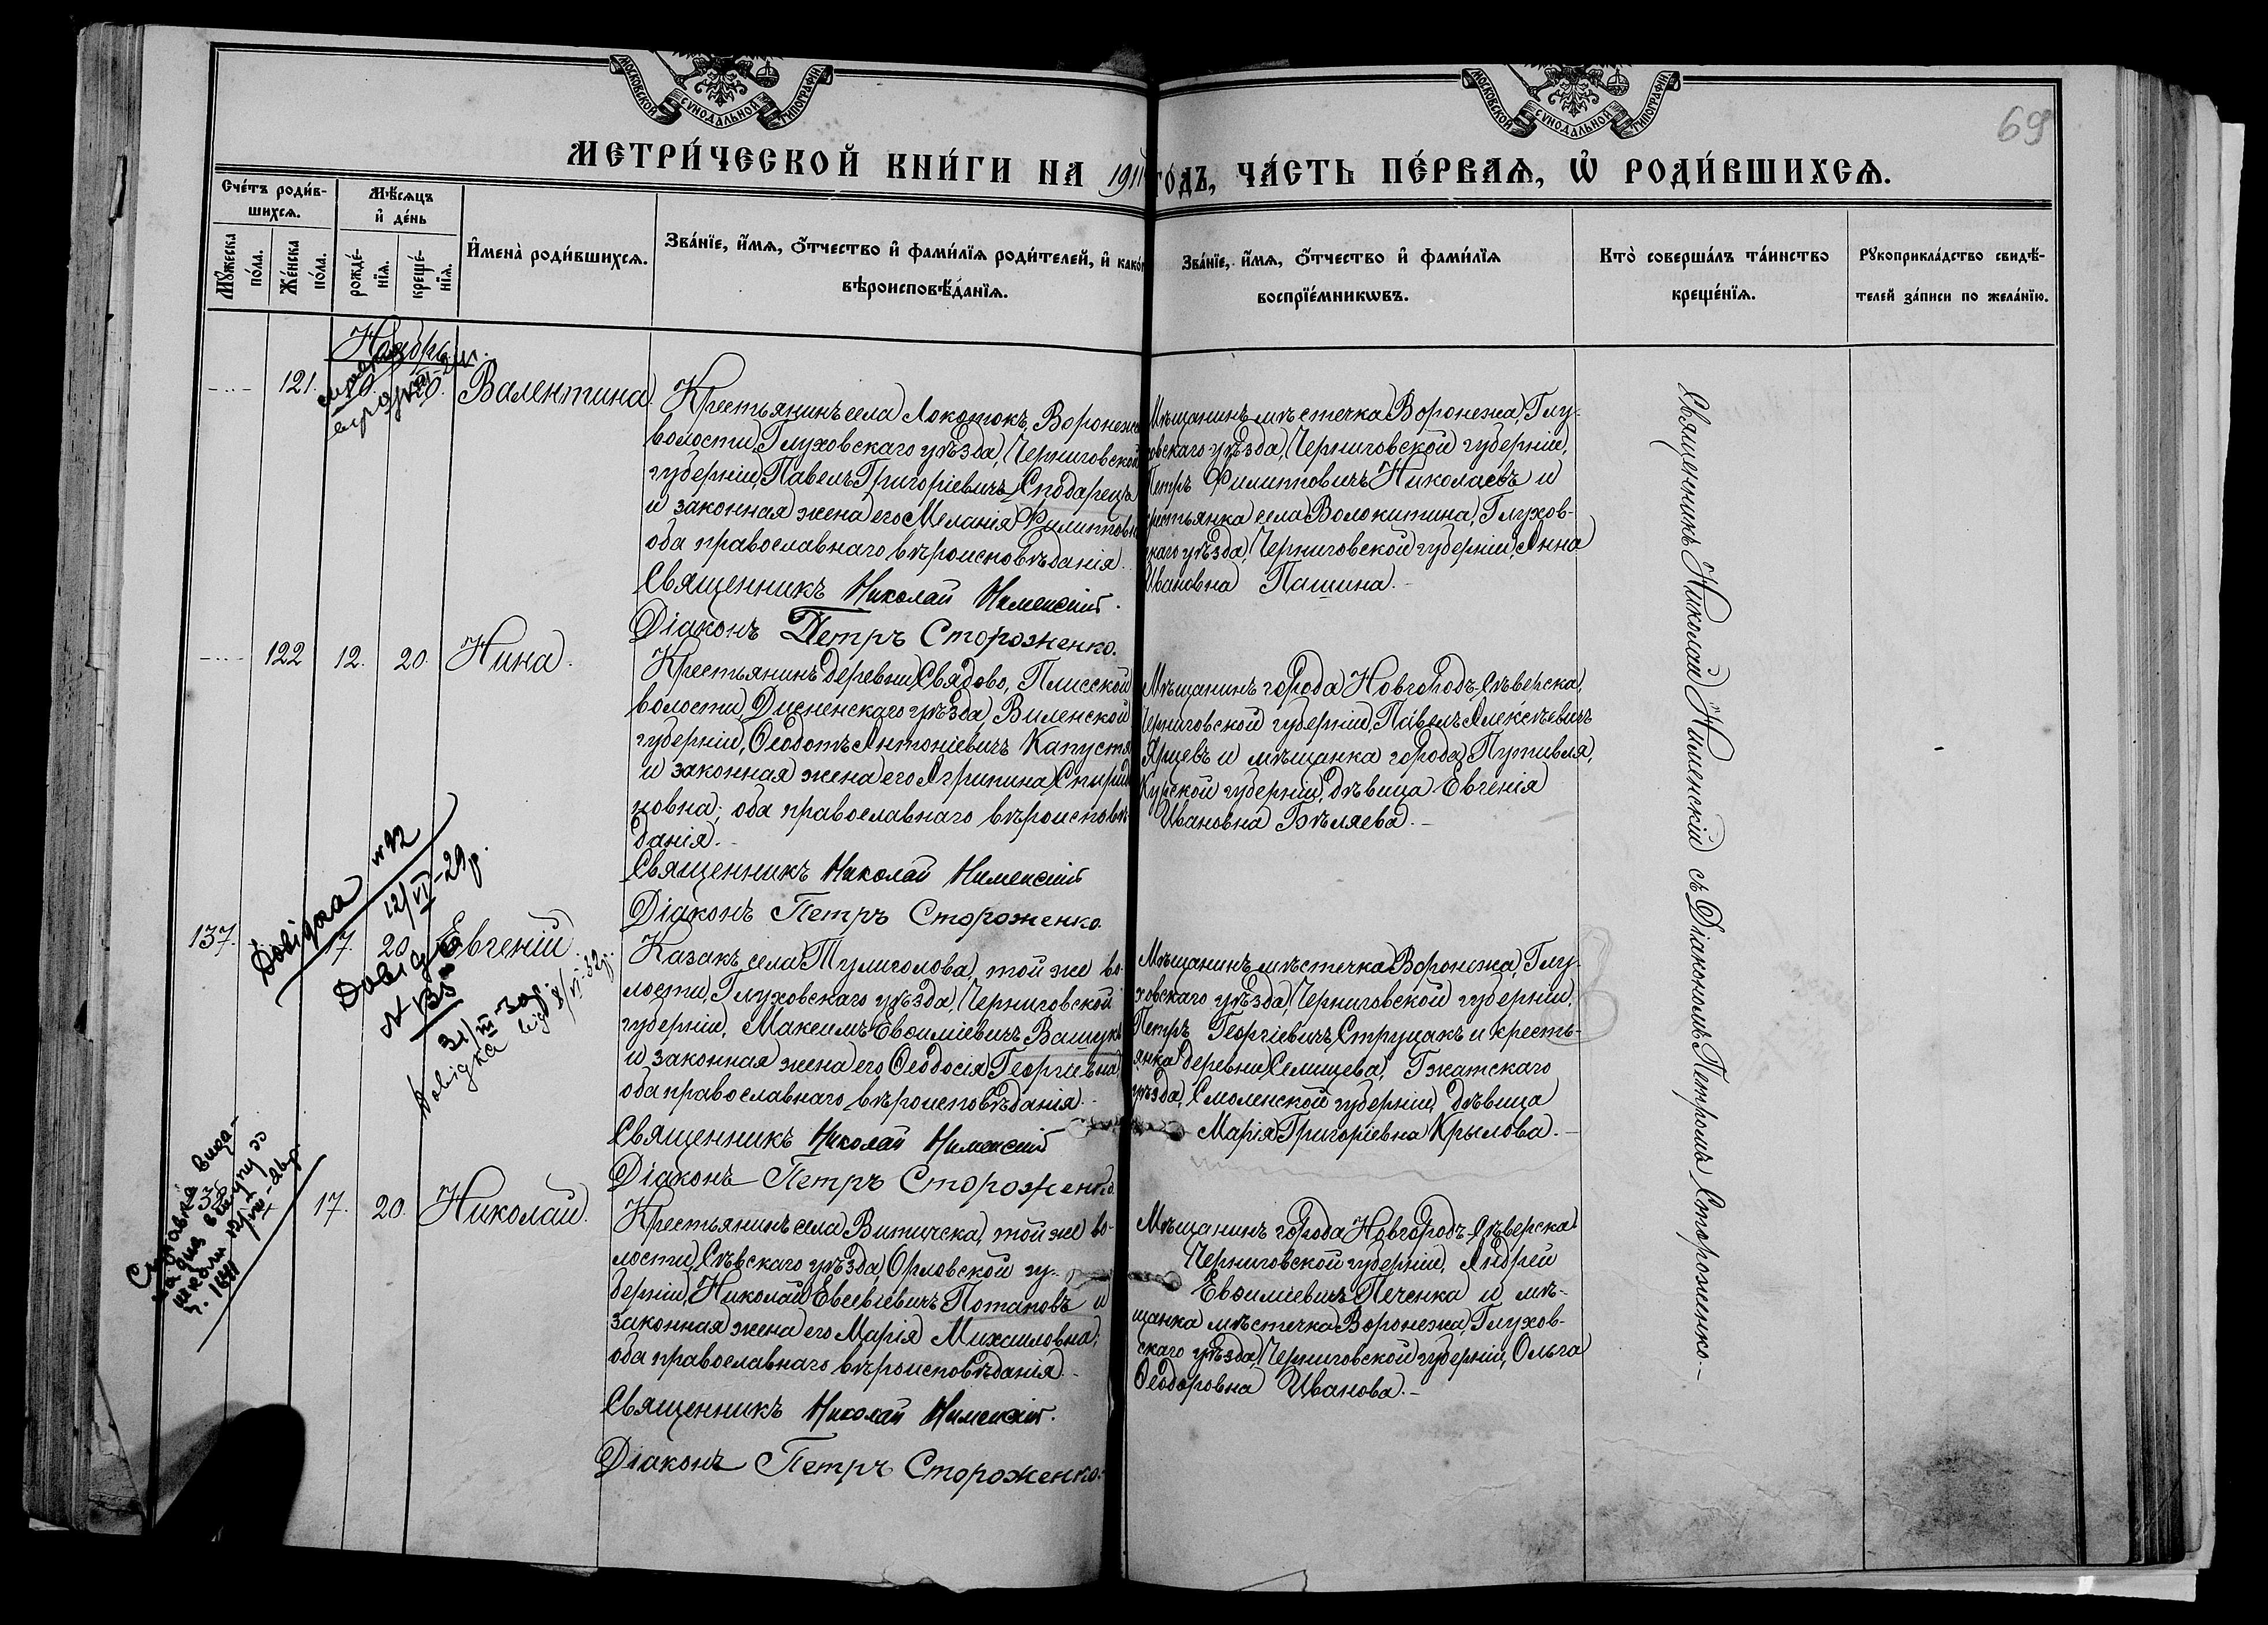 МОСКОВСКОЙ СѴНОДАЛЬНОЙ ТИПОГРАФІИ
МОСКОВСКОЙ СѴНОДАЛЬНОЙ ТИПОГРАФІИ
69
МЕТРИ́ЧЕСКОЙ КНИ́ГИ НА 1911 ГОДЪ, ЧА́СТЬ ПЕ́РВАѦ, Ѡ҆ РОДИ́ВШИХСѦ.
Сче́тъ роди́в-
шихсѧ.
Мѣ́сѧцъ
и҆ де́нь
Мꙋ́жеска
по́ла.
Же́нска
по́ла.
рожде́-
нїѧ.
креще́-
нїѧ.
И҆мена̀ роди́вшихсѧ.
Зва́нїе, и҆́мѧ, ѻ҆́тчество и҆ фами́лїѧ роди́телей, и҆ како́
вѣроисповѣ́данїѧ.
Зва́нїе, и҆́мѧ, ѻ҆́тчество и҆ фами́лїѧ
воспрїе́мникѡвъ.
Кто̀ соверша́лъ та́инство
креще́нїѧ.
Рꙋкоприкла́дство свидѣ́-
телей за́писи по жела́нїю.
Ноябрь.
121. 20. Валентина.
Крестьянинъ села Локотокъ, Воронеж
волости, Глуховскаго уѣзда, Черниговской
губерніи, Павелъ Григоріевичъ Сподарецъ
и законная жена его Меланія Филиппов
оба православнаго вѣроисповѣданія.
Священникъ Николай Нименскій.
Діаконъ Петръ Стороженко.
Мѣщанинъ мѣстечка Воронежа, Глу-
ховскаго уѣзда, Черниговской губерніи,
Петръ Филипповичъ Николаевъ и
крестьянка села Волокитина, Глухов-
скаго уѣзда, Черниговской губерніи, Анна
Ивановна Пашина.-
122 12. 20. Нина.
Крестьянинъ деревни Свядово, Плисской
волости, Дисненскаго уѣзда, Виленской
губерніи, Ѳеодотъ Антоніевичъ Капуст
и законная жена его Агрипина Спирид
новна; оба православнаго вѣроисповѣ
данія.-
Священникъ Николай Нименскій
Діаконъ Петръ Стороженко.
Мѣщанинъ города Новгородъ-Сѣверска,
Черниговской губерніи, Павелъ Алексѣевичъ
Ярцевъ и мѣщанка города Путивля,
Курской губерніи, дѣвица Евгенія
Ивановна Бѣляева.-
Довідка №92
12/VI-29р.
Довід
N 135
31/III-30р.
Довідка від 8/VI-32р.
137. 17. 20. Евгеній.
Казакъ села Тулиголова, той же во-
лости, Глуховскаго уѣзда, Черниговской
губерніи, Максимъ Евѳиміевичъ Вашукъ
и законная жена его Ѳеодосія Георгіевна;
оба православнаго вѣроисповѣданія.-
Священникъ Николай Нименскій
Діаконъ Петръ Стороженко.
Мѣщанинъ мѣстечка Воронежа, Глу-
ховскаго уѣзда, Черниговской губерніи,
Петръ Георгіевичъ Струцакъ и кресть-
янка деревни Селищева, Гжатскаго
уѣзда, Смоленской губерніи, дѣвица
Марія Григоріевна Крылова.-
138 17. 20. Николай.
Крестьянинъ села Витичска, той же во-
лости, Сѣвскаго уѣзда, Орловской гу-
берніи, Николай Евсевіевичъ Потаповъ и
законная жена его Марія Михаиловна;
оба православнаго вѣроисповѣданія.-
Священникъ Николай Нименскій.
Діаконъ Петръ Стороженко.
Мѣщанинъ города Новгородъ-Сѣверска
Черниговской губерніи, Андрей
Евѳиміевичъ Печенка и мѣ-
щанка мѣстечка Воронежа, Глухов-
скаго уѣзда, Черниговской губерніи, Ольга
Ѳеодоровна Иванова.-
Священникъ Николай Нименскій съ Діакономъ Петромъ Стороженко.-